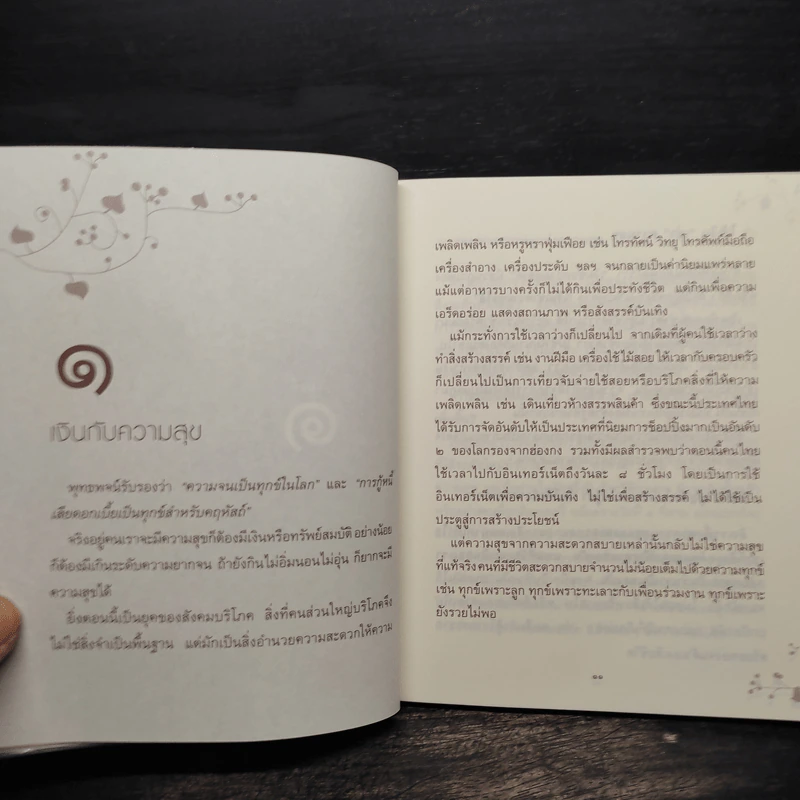 ๑
เงินกับความสุข
พุทธพจน์รับรองว่า "ความจนเป็นทุกข์ในโลก" และ "การกู้หนี้
เสียดอกเบี้ยเป็นทุกข์สำหรับคฤหัสถ์"
จริงอยู่คนเราจะมีความสุขก็ต้องมีเงินหรือทรัพย์สมบัติ อย่างน้อย
ก็ต้องมีเกินระดับความยากจน ถ้ายังกินไม่อิ่มนอนไม่อุ่น ก็ยากจะมี
ความสุขได้
ยิ่งตอนนี้เป็นยุคของสังคมบริโภค สิ่งที่คนส่วนใหญ่บริโภคจึง
ไม่ใช่สิ่งจำเป็นพื้นฐาน แต่มักเป็นสิ่งอำนวยความสะดวกให้ความ
เพลิดเพลิน หรือหรูหราฟุ่มเฟือย เช่น โทรทัศน์ วิทยุ โทรศัพท์มือถือ
เครื่องสำอาง เครื่องประดับ ฯลฯ จนกลายเป็นค่านิยมแพร่หลาย
แม้แต่อาหารบางครั้งก็ไม่ได้กินเพื่อประทังชีวิต แต่กินเพื่อความ
เอร็ดอร่อย แสดงสถานภาพ หรือสังสรรค์บันเทิง
แม้กระทั่งการใช้เวลาว่างก็เปลี่ยนไป จากเดิมที่ผู้คนใช้เวลาว่าง
ทำสิ่งสร้างสรรค์ เช่น งานฝีมือ เครื่องใช้ไม้สอย ให้เวลากับครอบครัว
ก็เปลี่ยนไปเป็นการเที่ยวจับจ่ายใช้สอยหรือบริโภคสิ่งที่ให้ความ
เพลิดเพลิน เช่น เดินเที่ยวห้างสรรพสินค้า ซึ่งขณะนี้ประเทศไทย
ได้รับการจัดอันดับให้เป็นประเทศที่นิยมการช็อปปิ้งมากเป็นอันดับ
๒ ของโลกรองจากฮ่องกง รวมทั้งมีผลสำรวจพบว่าตอนนี้คนไทย
ใช้เวลาไปกับอินเทอร์เน็ตถึงวันละ ๘ ชั่วโมง โดยเป็นการใช้
อินเทอร์เน็ตเพื่อความบันเทิง ไม่ใช่เพื่อสร้างสรรค์ ไม่ได้ใช้เป็น
ประตูสู่การสร้างประโยชน์
แต่ความสุขจากความสะดวกสบายเหล่านั้นกลับไม่ใช่ความสุข
ที่แท้จริง คนที่มีชีวิตสะดวกสบายจำนวนไม่น้อยเต็มไปด้วยความทุกข์
เช่น ทุกข์เพราะลูก ทุกข์เพราะทะเลาะกับเพื่อนร่วมงาน ทุกข์เพราะ
ยังรวยไม่พอ
๑๑